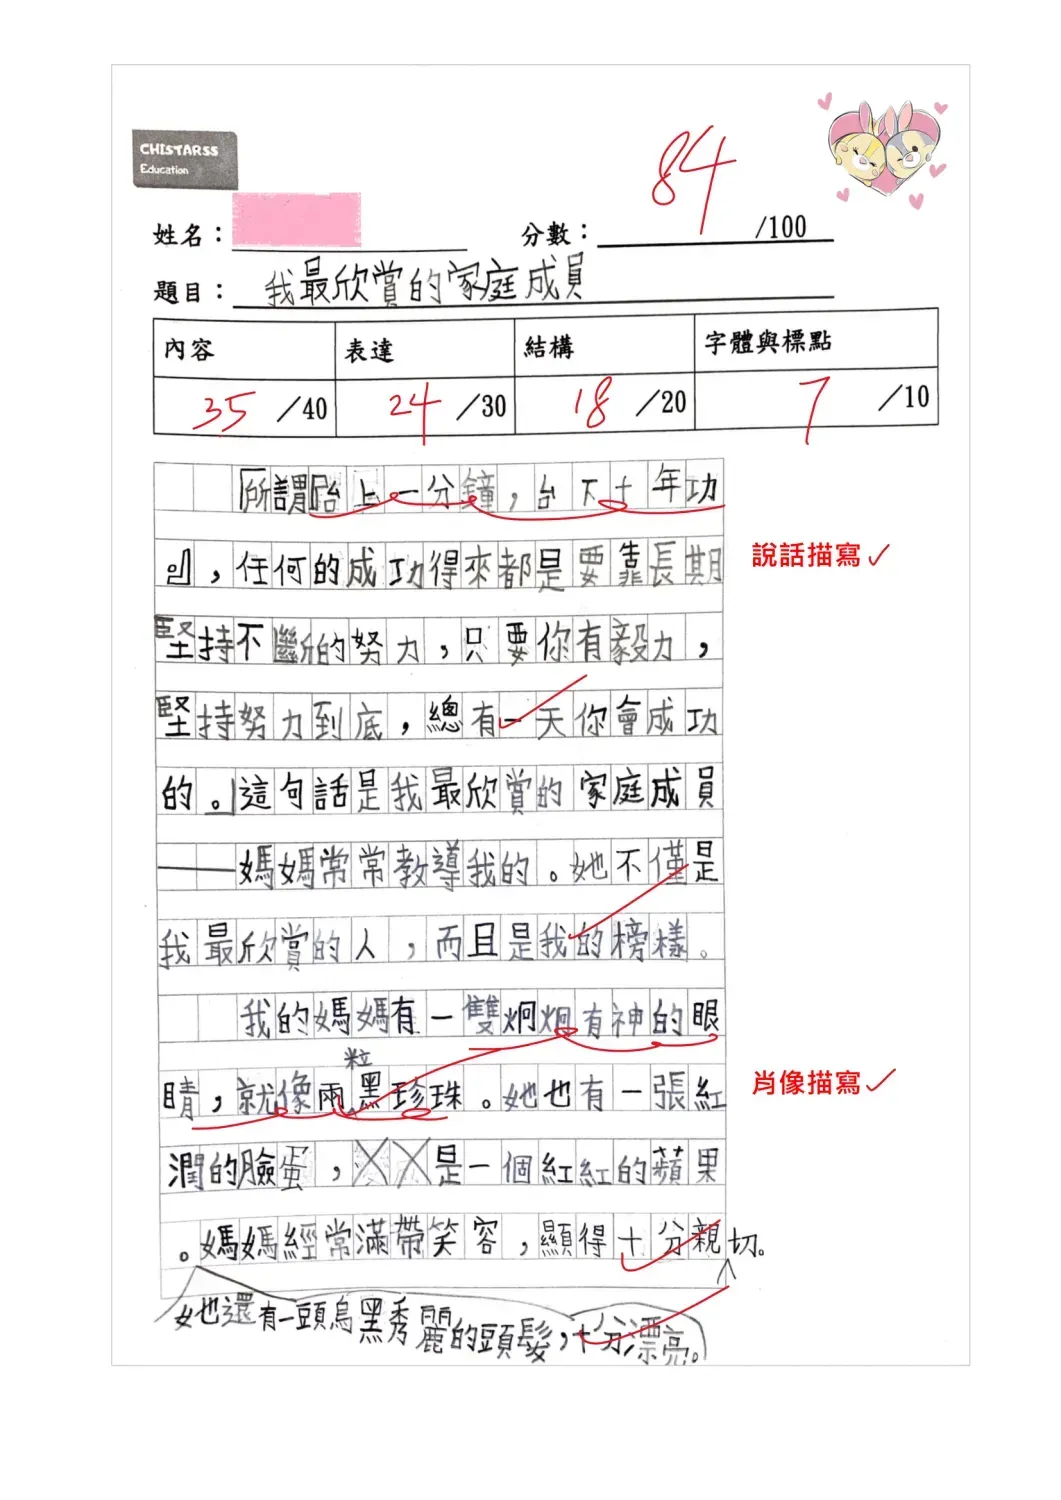 CHISTARSS
Education
84
姓名：
分數：
/100
題目：
我最欣賞的家庭成員
內容
表達
結構
字體與標點
35 /40
24 /30
18 /20
7 /10
「所謂『台上一分鐘，台下十年功
』，任何的成功得來都是要靠長期
說話描寫✓
堅持不斷的努力，只要你有毅力，
堅持努力到底，總有一天你會成功
的。」這句話是我最欣賞的家庭成員
——媽媽常常教導我的。她不僅是
我最欣賞的人，而且是我的榜樣。
我的媽媽有一雙炯炯有神的眼
粒
睛，就像兩黑珍珠。她也有一張紅
肖像描寫✓
潤的臉蛋，是一個紅紅的蘋果
。媽媽經常滿帶笑容，顯得十分親切。
她也還有一頭烏黑秀麗的頭髮，十分漂亮。